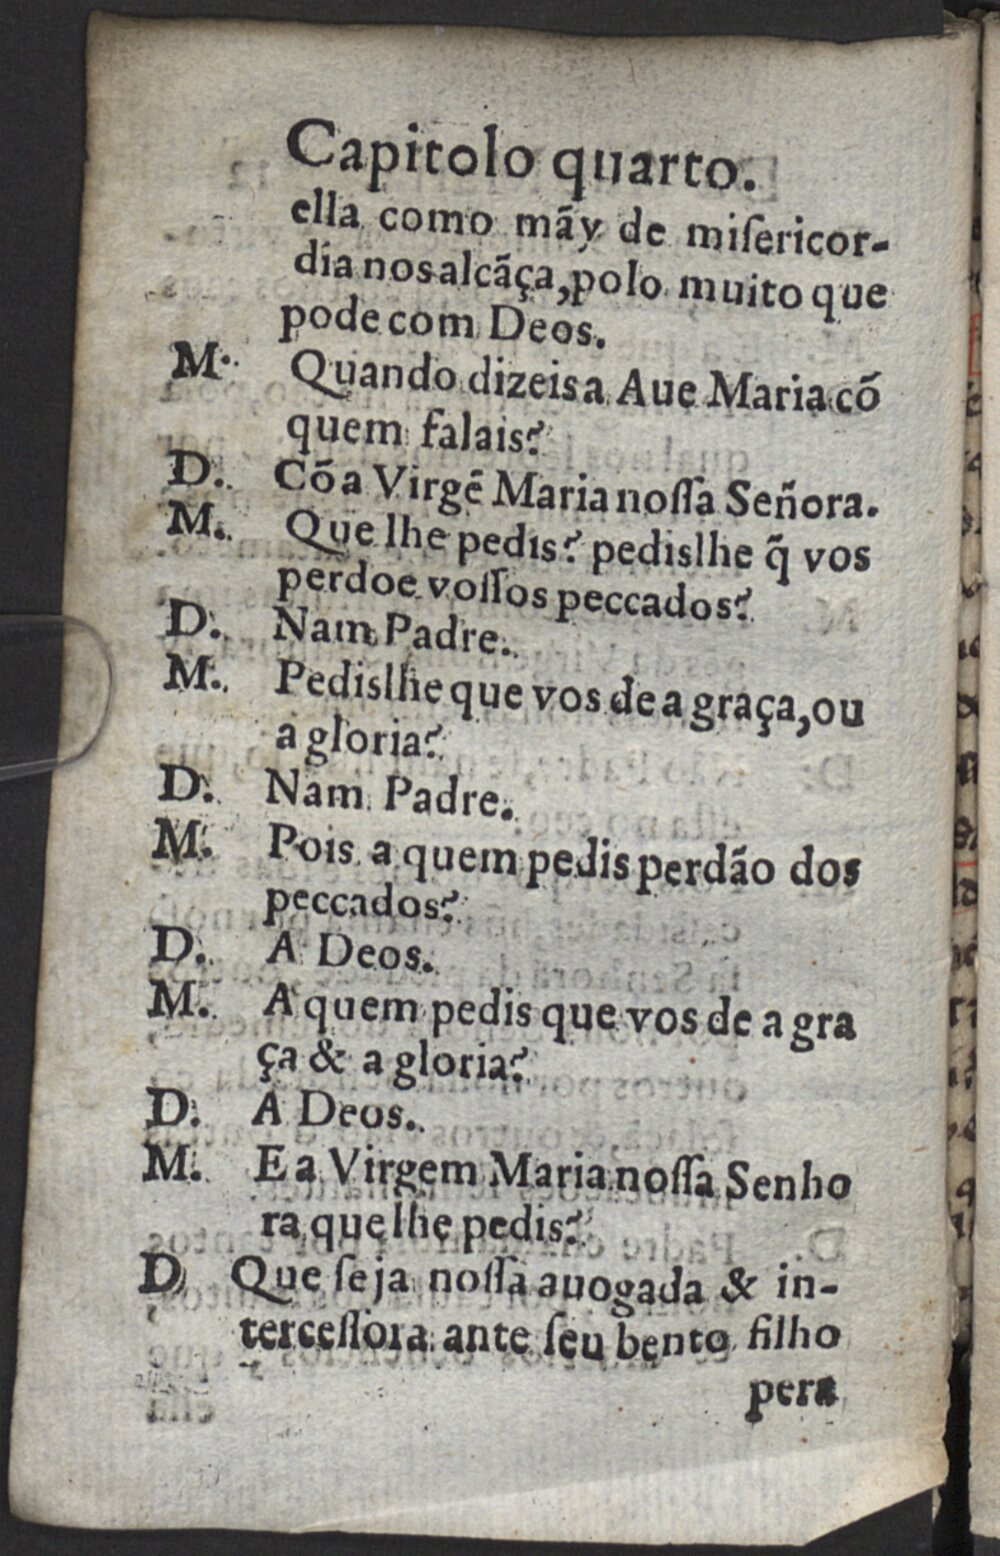 Capitolo quarto.
ella como mãy de miſericor-
dia nos alcãça, polo muito que
pode com Deos.
M. Quando dizeis a Aue Maria cõ
quem falais?
D. Cõ a Virgẽ Maria noſſa Señora.
M. Que lhe pedis? pedislhe q̃ vos
perdoe voſſos peccados?
D. Nam Padre.
M. Pedislhe que vos de a graça, ou
a gloria?
D. Nam Padre.
M. Pois a quem pedis perdão dos
peccados?
D. A Deos.
M. A quem pedis que vos de a gra
ça & a gloria?
D. A Deos.
M. E a Virgem Maria noſſa Senho
ra que lhe pedis?
D Que ſeja noſſa auogada & in-
terceſſora ante ſeu bento filho
pera